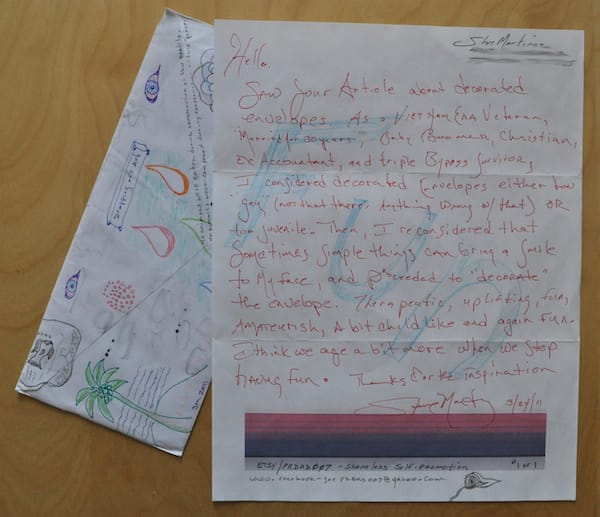 Steve Martinez
Hello.
Saw Your Article about decorated
envelopes. As a Viet Nam Era Veteran,
"Married for 30 years", Baby Boomer, Christian,
Ex Accountant, and triple Bypass Survivor,
I considered decorated Envelopes either too
"gay" (not that there's Anything wrong w/ that) OR
too juvenile. Then, I reconsidered that
Sometimes simple things can bring a smile
to My face, and proceeded to "decorate"
the envelope. Therapeutic, uplifting, fun,
Amateurish, A bit child like and again fun.
I think we age a bit more when we stop
having fun. Thanks for the inspiration
3/24/11
FUN
ETSY/PRDAD007 - Shameless Self-Promotion
#1 of 1
www.facebook - for PRDAD007@yahoo.com
Drafting 101 Art
Jan 2011